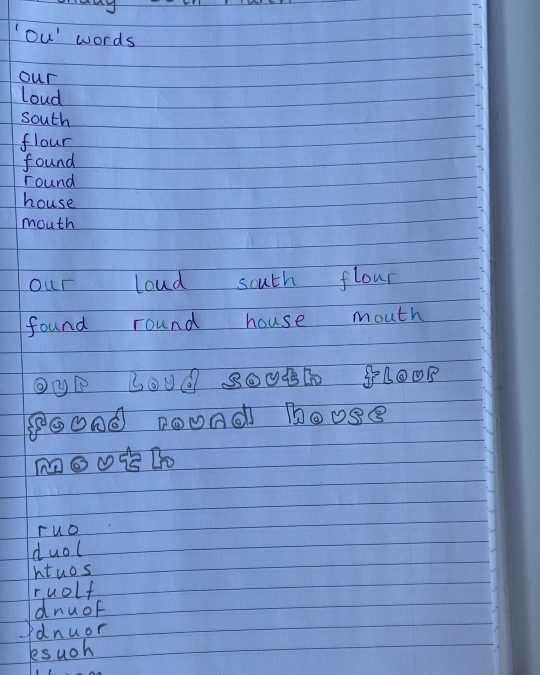 'ou' words
our
loud
south
flour
found
round
house
mouth
our loud south flour
found round house mouth
our loud south flour
found round house
mouth
ruo
duol
htuos
ruolf
dnuof
dnuor
esuoh